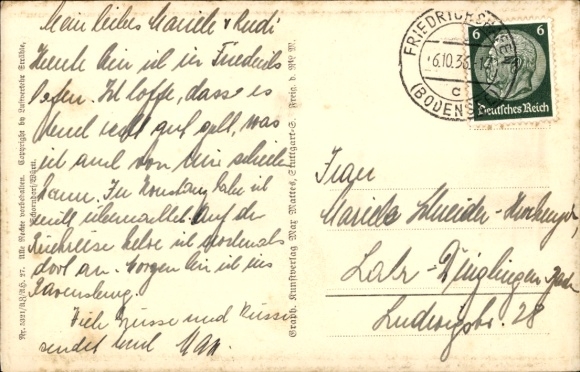 Mein liebes Mariele + Rudi
Heute bin ich in Friedrichs
hafen. Ich hoffe, dass es
Euch recht gut geht, was
ich auch von mir schreiben
kann. In Konstanz habe ich
nicht übernachtet. Auf der
Rückreise halte ich nochmals
dort an. Morgen bin ich in
Ravensburg.
Viele Grüsse und Küsse
sendet Euch Max
Nr. 5321/ Alle Rechte vorbehalten. Copyright by Luftverkehr Strähle, Schorndorf/Württ.
Graph. Kunstverlag Max Mattes, Stuttgart-S. Freig. d. RLM.
FRIEDRICHSHAFEN
6.10.36
c
(BODENSEE)
6 6
Deutsches Reich
Frau
Mariele Schneider-
Lahr-Dinglingen
Ludwigstr. 28